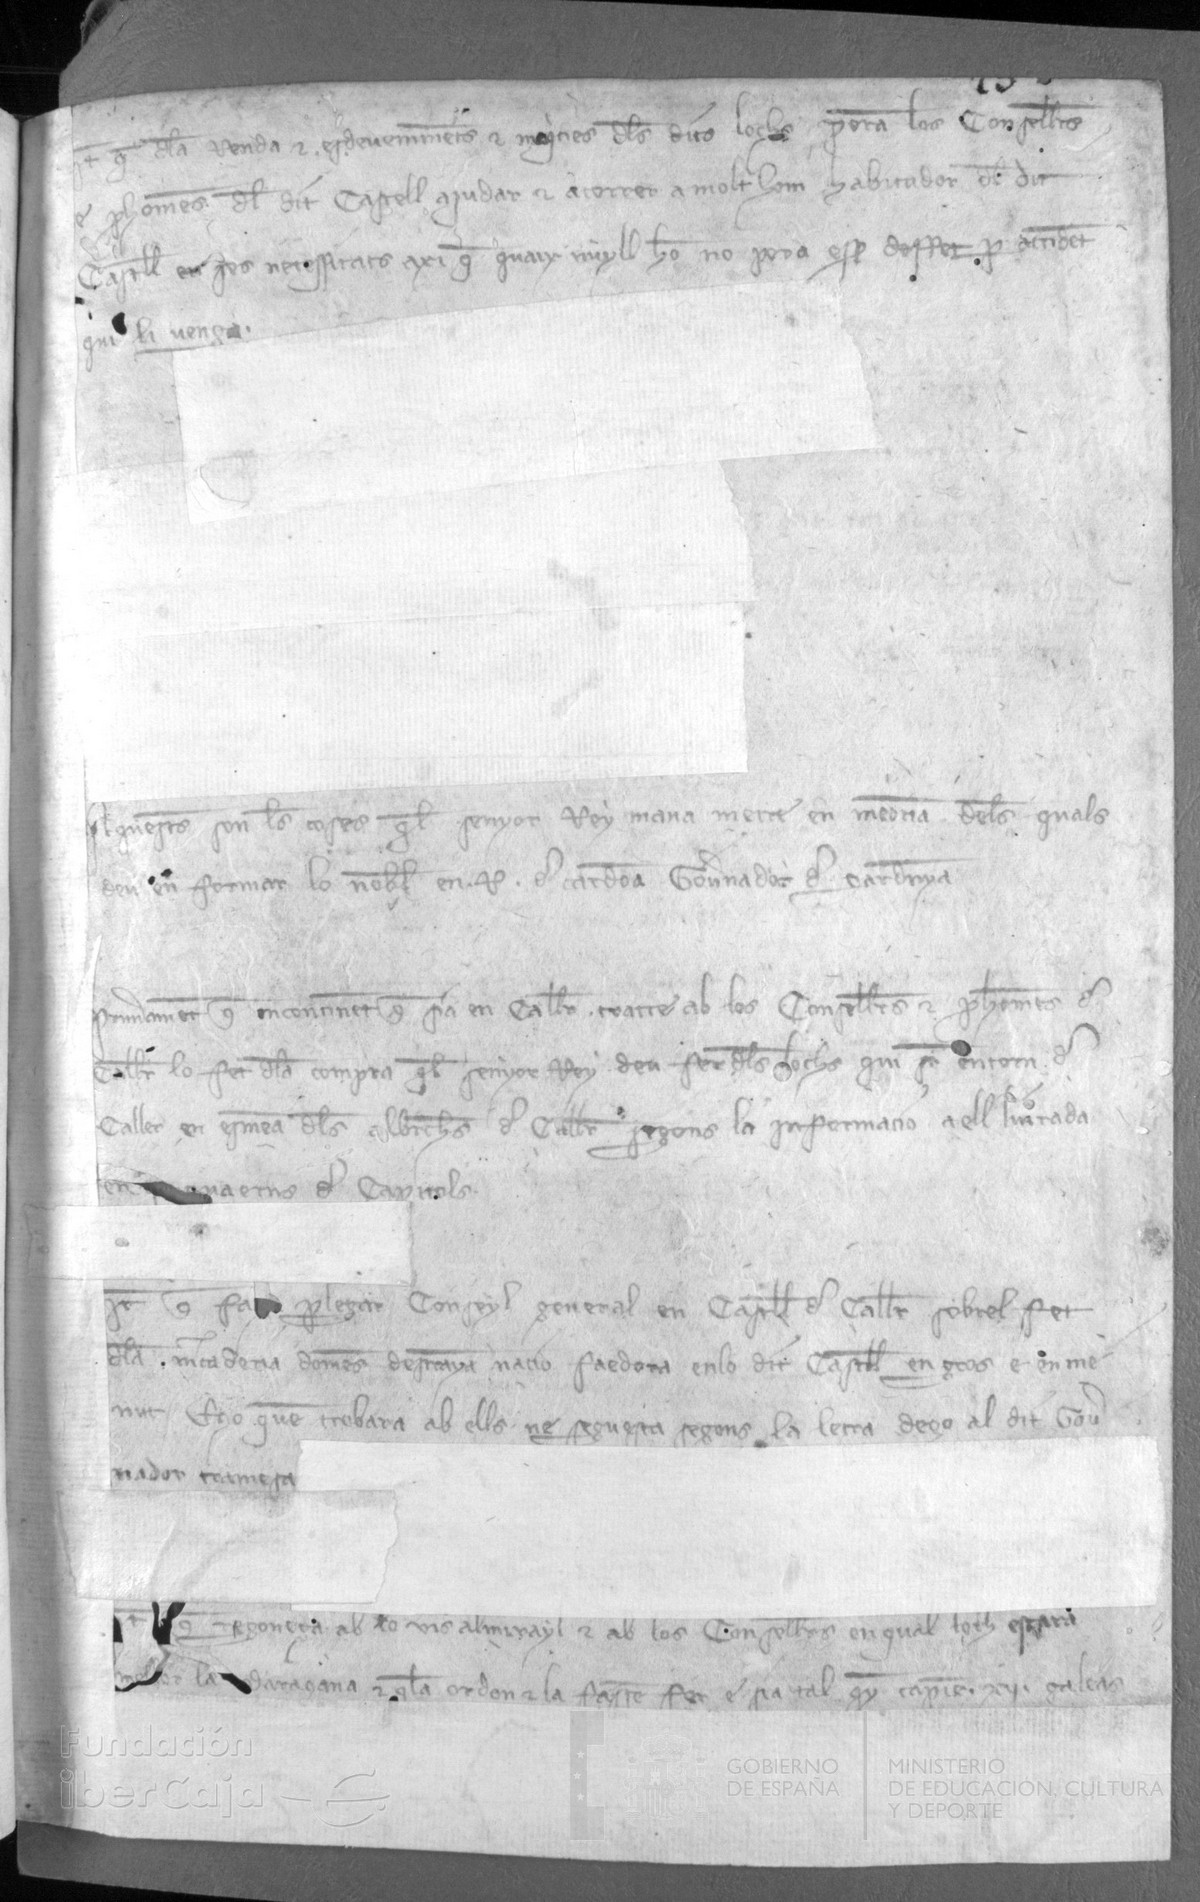 It q̄ dla renda ⁊ esdeveniments ⁊ dls dits lochs pora los Consellrs
e p̄homēs dl dit Castell ajudar ⁊ acorrer a molt hom habitador dl dit
Castll en ses necessitats axi q̄ quaix nuyll hō no pora esser deffet p accidēt
qui li venga.
Aquests son ls coses q̄l senyor Rey mana metre en memoria dels quals
deu en formar lo nobl en .R. d cardona Gov̄nador d Cerdenya
Primāment q̄ encontinēt q̄ sia en Callr tracte ab los Consellrs ⁊ p̄homēs d
Callr lo fet dla compra q̄l senyor Rey deu fer dls lochs qui sō entorn d
Caller en esmena dls alberchs d Callr segons la informacio a ell liurada
en d Capitols.
It q̄ faça plegar Conseyl general en Castll d Callr sobrel fet
dla m̄caderia domēs destraya nacio faedora en lo dit Castll en gros e en me
nut Eço que trobara ab ells ne seguesca segons la letra dego al dit Gov̄
nador tramesa
It q̄ regonega ab lo vis almirayl ⁊ ab los Consellrs en qual loch estara
mellor la daraçana ⁊ q̄la ordon ⁊ la façe fer e sia tal q̄ y capiē .xij. galeas
GOBIERNO
DE ESPAÑA
MINISTERIO
DE EDUCACIÓN, CULTURA
Y DEPORTE
Fundación
iberCaja